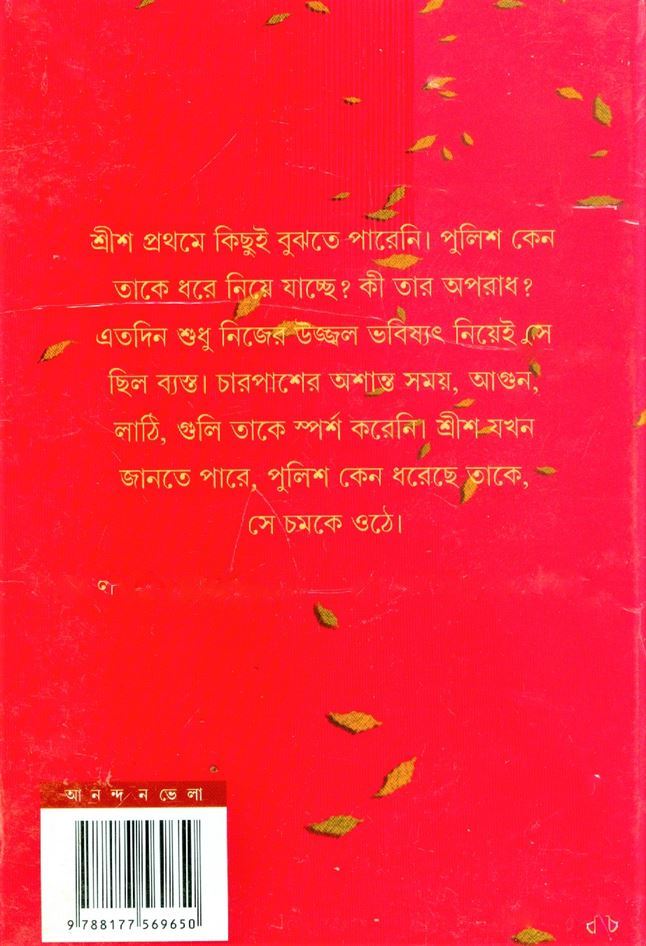 শ্রীশ প্রথমে কিছুই বুঝতে পারেনি। পুলিশ কেন
তাকে ধরে নিয়ে যাচ্ছে? কী তার অপরাধ?
এতদিন শুধু নিজের উজ্জ্বল ভবিষ্যৎ নিয়েই সে
ছিল ব্যস্ত। চারপাশের অশান্ত সময়, আগুন,
লাঠি, গুলি তাকে স্পর্শ করেনি। শ্রীশ যখন
জানতে পারে, পুলিশ কেন ধরেছে তাকে,
সে চমকে ওঠে।
আ ন ন্দ ন ভে লা
9 788177 569650